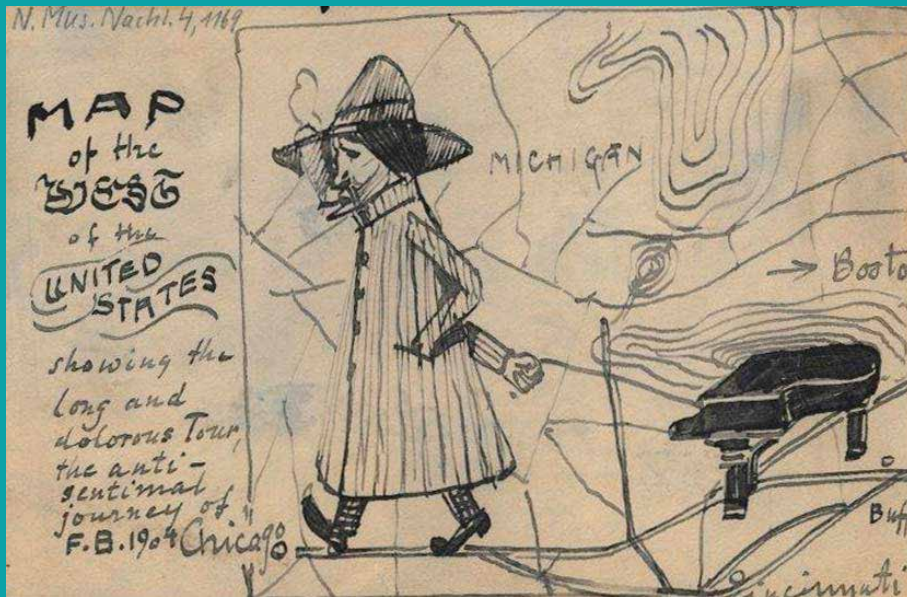 N. Mus. Nachl. 4, 1169
MAP
of the
WEST
of the
UNITED
STATES
showing the
long and
dolorous Tour,
the anti-
sentimal
journey of
F.B. 1904
Chicago
MICHIGAN
→ Bosto
Buff
Cincinnati